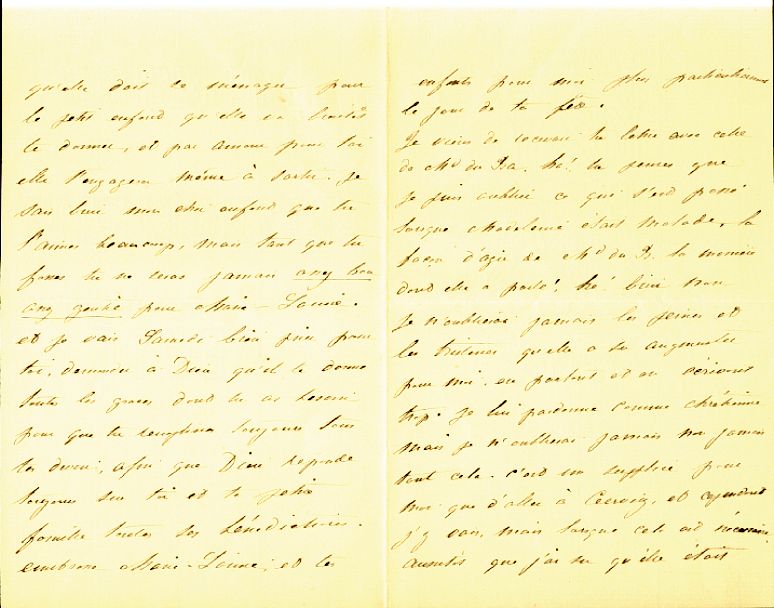 qu'elle doit se ménager pour
le petit enfant qu'elle va bientôt
te donner, et par amour pour toi
elle t'engagera même à sortir. Je
sais bien mon cher enfant que tu
l'aimes beaucoup, mais tant que tu
fasses tu ne seras jamais assez bon
assez gentil pour Marie-Louise.
et je vais Samedi bien prier pour
toi, demander à Dieu qu'il te donne
toutes les graces dont tu as besoin
pour que tu remplisses toujours tous
tes devoirs, afin que Dieu répande
toujours sur toi et ta petite
famille toutes ses bénédictions.
embrasse Marie-Louise, et tes
enfants pour moi plus particulièrement
le jour de ta fête.
Je viens de recevoir ta lettre avec celle
de Md du Ba. hé! tu penses que
je puis oublier ce qui s'est passé
lorsque Madeleine était malade, la
façon d'agir de Md du B. la manière
dont elle a parlé! hé! bien non
je n'oublierai jamais les peines et
les tristesses qu'elle a su augmenter
pour moi. en parlant et en écrivant
trop. Je lui pardonne comme chrétienne
mais je n'oublierai jamais non jamais
tout cela. c'est un supplice pour
moi que d'aller à et cependant
j'y vais, mais lorsque cela est nécessaire
aussitôt que j'ai su qu'elle était